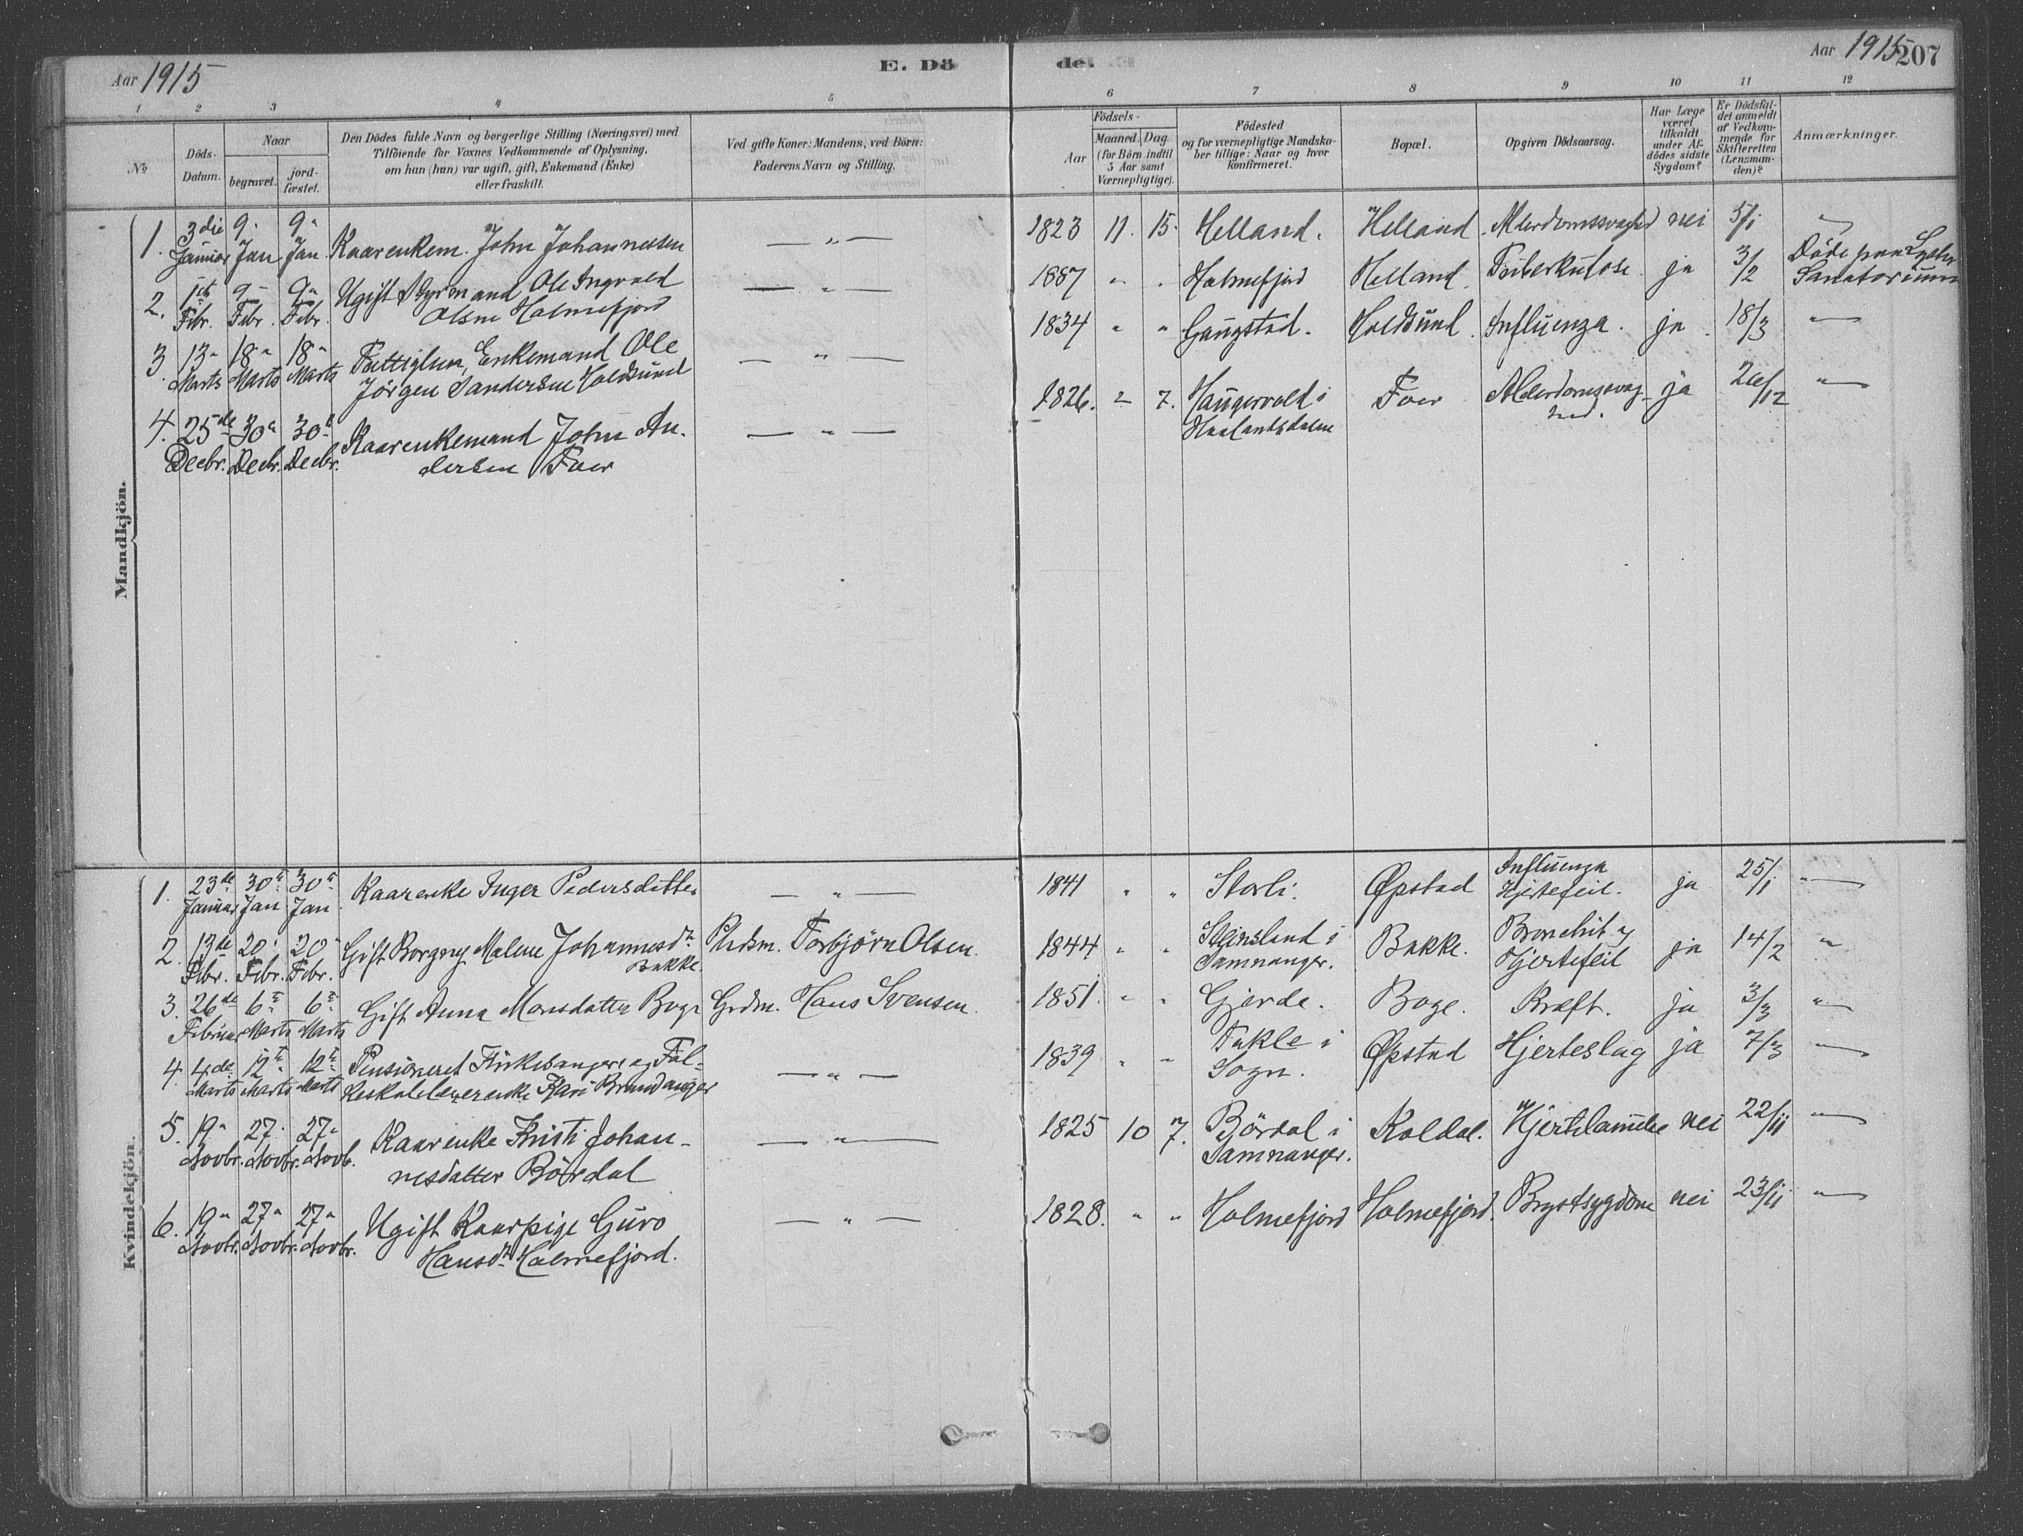 Aar 1915
E. Dö
de.
Aar 1915
207
1 2 3 4 5
6 7 8 9 10 11 12
№
Döds-
Datum.
Naar
begravet.
jord-
fæstet.
Den Dödes fulde Navn og borgerlige Stilling (Næringsvei) med
Tilföiende for Voxnes Vedkommende af Oplysning,
om han (hun) var ugift, gift, Enkemand (Enke)
eller fraskilt.
Ved gifte Koner: Mandens, ved Börn:
Faderens Navn og Stilling.
Födsels-
Aar
Maaned.
Dag.
(for Börn indtil
5 Aar samt
Værnepligtige).
Födested
og for værnepligtige Mandska-
ber tillige: Naar og hvor
konfirmeret.
Bopæl.
Opgiven Dödsaarsag.
Har Læge
været
tilkaldt
under Af-
dödes sidste
Sygdom?
Er Dödsfal-
det anmeldt
af Vedkom-
mende for
Skifteretten
(Lensman-
den)?
Anmærkninger.
Mandkjön.
1. 3die Januar 9. Jan 9 Jan. Kaarenkem. John Johannessen — „ — 1823 11. 15. Helland. Helland nei 5/1 „
2. 1ste Febr. 9 Febr. 9 Febr. Ugift Styrmand Ole Ingvald
Olsen Holmefjord — „ — 1887 „ „ Holmefjord Helland. Tuberkulose. ja 3/2 Døde paa
Sanatorium
3. 13 Marts 18 Marts 18 Marts Enkemand Ole
Jörgen Sandersen Holdsund — „ — 1834 „ „ Gaugstad. Holdsund. Influenza. ja. 18/3 „
4. 25de Decbr. 30 Decbr. 30 Decbr. Kaarenkemand John An-
dersen Foer — „ — 1826. 2 7. Haugervold i
Haalandsdalen Foer ja 26/12 „
Kvindekjön.
1. 23de Januar 30te Jan 30te Jan. Kaarenke Inger Pedersdatter — „ — 1841 „ „ Storli. Øpstad Influenza
Hjertefeil. ja 25/1 „
2. 13de Febr. 20 Febr. 20 Febr. Gift Borgny Malene Johannesdr
Bakke. Plsdsm. Torbjørn Olsen. 1844 „ „ Steinsland i
Samnanger. Bakke. Bronchit og
Hjertefeil ja 14/2 „
3. 26de Februar 6te Marts 6te Marts Gift Anna Monsdatter Boge Grdm. Hans Svensen. 1851. „ „ Gjerde. Boge. Kræft. ja 3/3 „
4. 4de Marts 12te Marts 12te Marts Pensioneret Kirkesanger og Fol-
keskolelærerenke Kari Brandanger — „ — 1839 „ „ Takle i
Sogn. Øpstad Hjerteslag ja 7/3 „
5. 19 Novbr. 27 Novbr. 27 Novb. Kaarenke Kristi Johan-
nesdatter Bördal — „ — 1825 10 7. Björdal i
Samnanger. Koldal. Hjertelammelse nei 22/11 „
6. 19 Novbr. 27 Novbr. 27 Novbr. Ugift Kaarpige Guro
Hansdr Holmefjord. — „ — 1828. „ „ Holmefjord Holmefjord. Brystsygdom nei 23/11 „